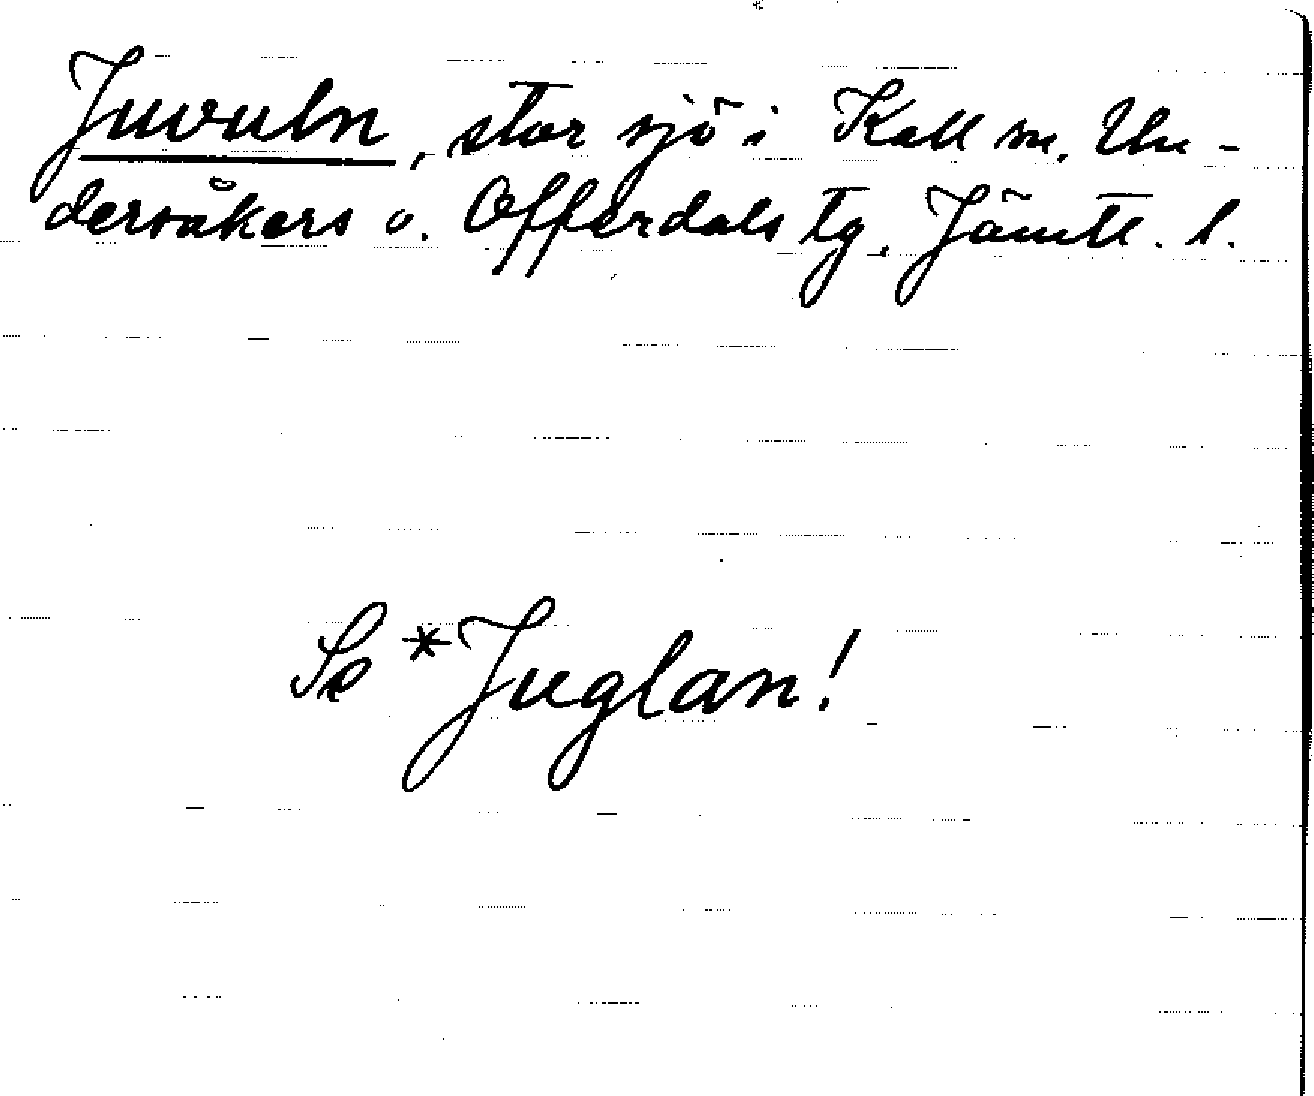 Juvuln, stor sjö i Kall sn. Un-
dersåkers o. Offerdals tg. Jämtl. l.
Se *Juglan!